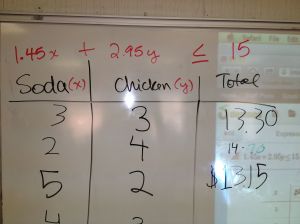 1.45x + 2.95y ≤ 15
Soda(x) Chicken(y) Total
3 3 13.30
2 4 14.70
5 2 $13.15